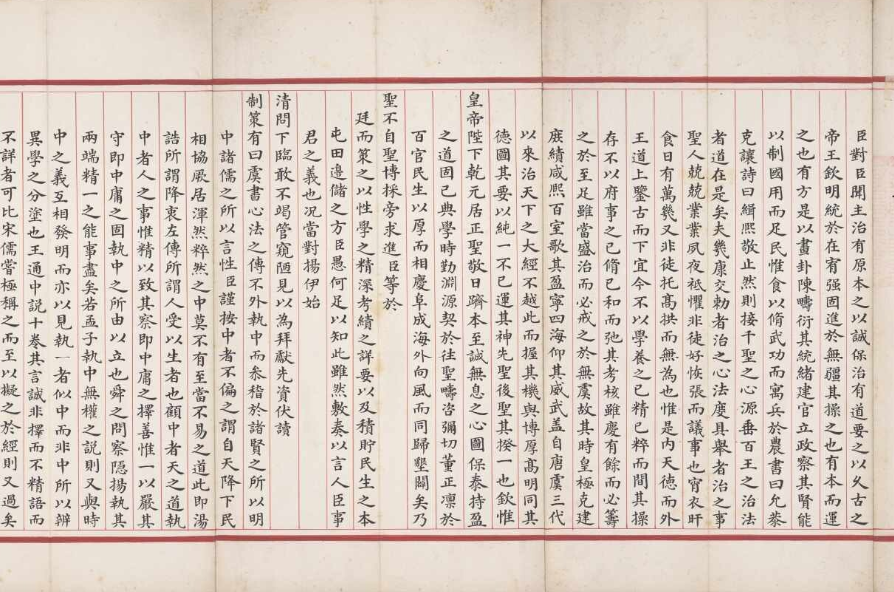 臣對臣聞主治有原本之以誠保治有道要之以久古之
帝王欽明統於在宥强固進於無疆其操之也有本而運
之也有方是以畫卦陳疇衍其統緒建官立政察其賢能
以制國用而足民惟食以脩武功而寓兵於農書曰允恭
克讓詩曰緝熙敬止然則接千聖之心源垂百王之治法
者道在是矣夫幾康交勅者治之心法具舉者治之事
聖人兢兢業業夙夜祗懼非徒好恢張而議事也宵衣旰
食日有萬幾又非徒托高拱而無為也惟是内天德而外
王道上鑒古而下宜今不以學養之已精已粹而間其操
存不以府事之已脩已和而弛其考核雖慶有餘而必籌
之於至足雖當盛治而必戒之於無虞故其時皇極克建
庶績咸熙百室歌其盈寧四海仰其威武盖自唐虞三代
以來治天下之大經不越此而握其機與博厚高明同其
德圖其要以純一不已運其神先聖後聖其揆一也欽惟
皇帝陛下乾元居正聖敬日躋本至誠無息之心圖保泰持盈
之道固已典學時勤淵源契於往聖疇咨彌切董正凜於
百官民生以厚而相慶阜成海外向風而同歸墾闢矣乃
聖不自聖博採旁求進臣等於
廷而策之以性學之精深考績之詳要以及積貯民生之本
屯田邊儲之方臣愚何足以知此雖然敷奏以言人臣事
君之義也况當對揚伊始
清問下臨敢不竭管窺陋見以為拜獻先資伏讀
制策有曰虞書心法之傳不外執中而叅稽於諸賢之所以明
中諸儒之所以言性臣謹按中者不偏之謂自天降下民
相協厥居渾然粹然之中莫不有至當不易之道此即湯
誥所謂降衷左傳所謂人受以生者也顧中者天之道執
中者人之事惟精以致其察即中庸之擇善惟一以嚴其
守即中庸之固執中之所由以立也舜之問察隱揚執其
兩端精一之能事盡矣若孟子執中無權之說則又與時
中之義互相發明而亦以見執一者似中而非中所以辨
異學之分塗也王通中說十卷其言誠非擇而不精語而
不詳者可比宋儒嘗極稱之而至以擬之於經則又過矣